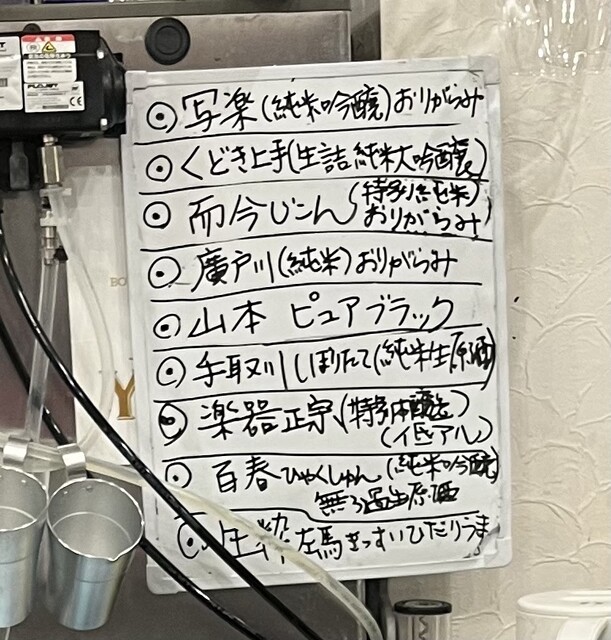 注意
PLOJET
CE
BO
Y
⦿写楽(純米吟醸)おりがらみ
⦿くどき上手(生詰純米大吟醸)
⦿而今じこん(特別純米)
おりがらみ
⦿廣戸川(純米)おりがらみ
⦿山本 ピュアブラック
⦿手取川しぼりたて(純米生原酒)
⦿楽器正宗(特別本醸造)
(低アル)
⦿百春ひゃくしゅん(純米吟醸)
無ろ過生原酒
⦿生粋左馬きっすいひだりうま